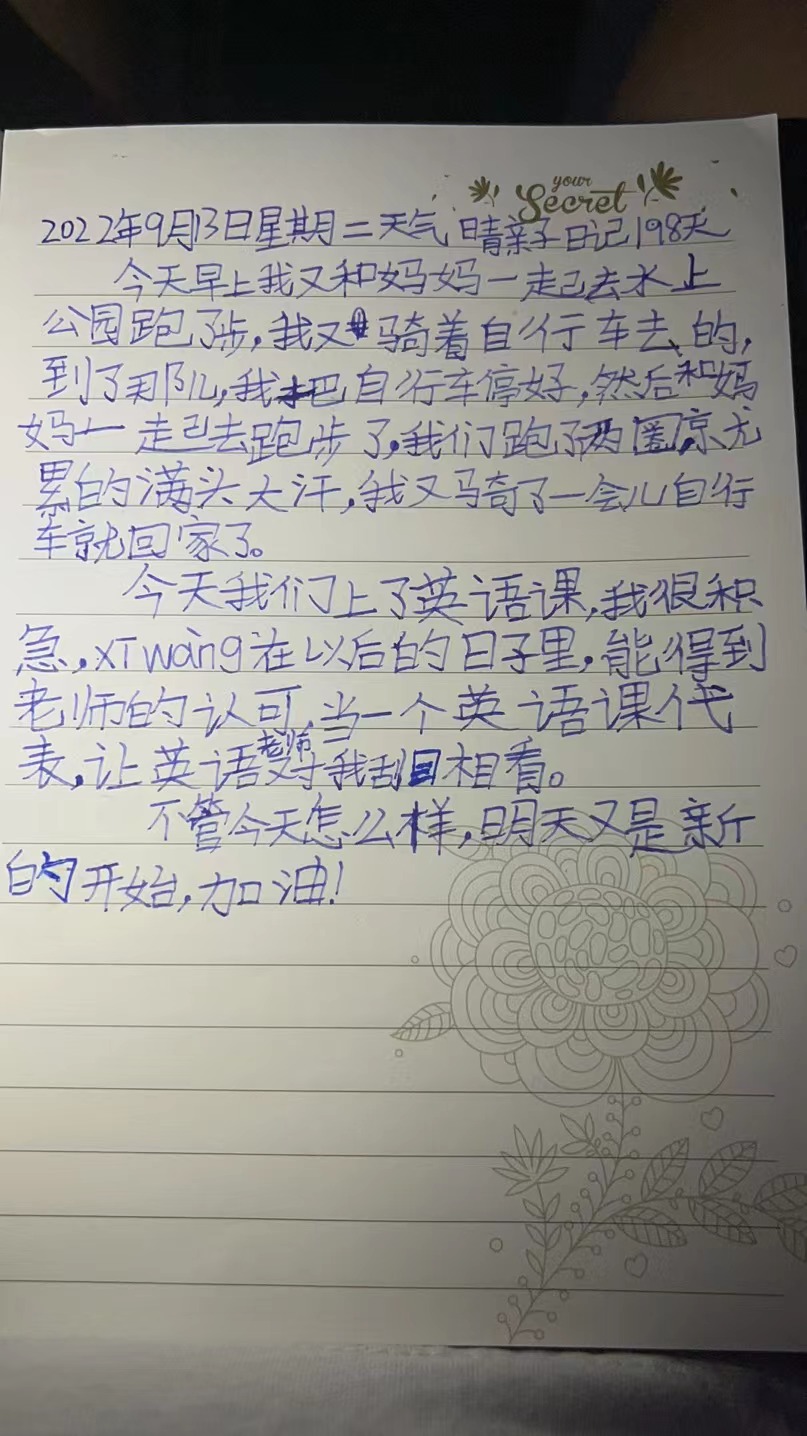 your
Secret
2022年9月13日星期二天气 晴亲子日记198天
今天早上我又和妈妈一起去水上
公园跑了步,我又骑着自行车去的,
到了那儿,我把自行车停好,然后和妈
妈一起去跑步了,我们跑了两圈,就
累的满头大汗,我又骑了一会儿自行
车就回家了。
今天我们上了英语课,我很积
急,xīwàng在以后的日子里,能得到
老师的认可,当一个英语课代
表,让英语老师对我刮目相看。
不管今天怎么样,明天又是新
的开始,加油!